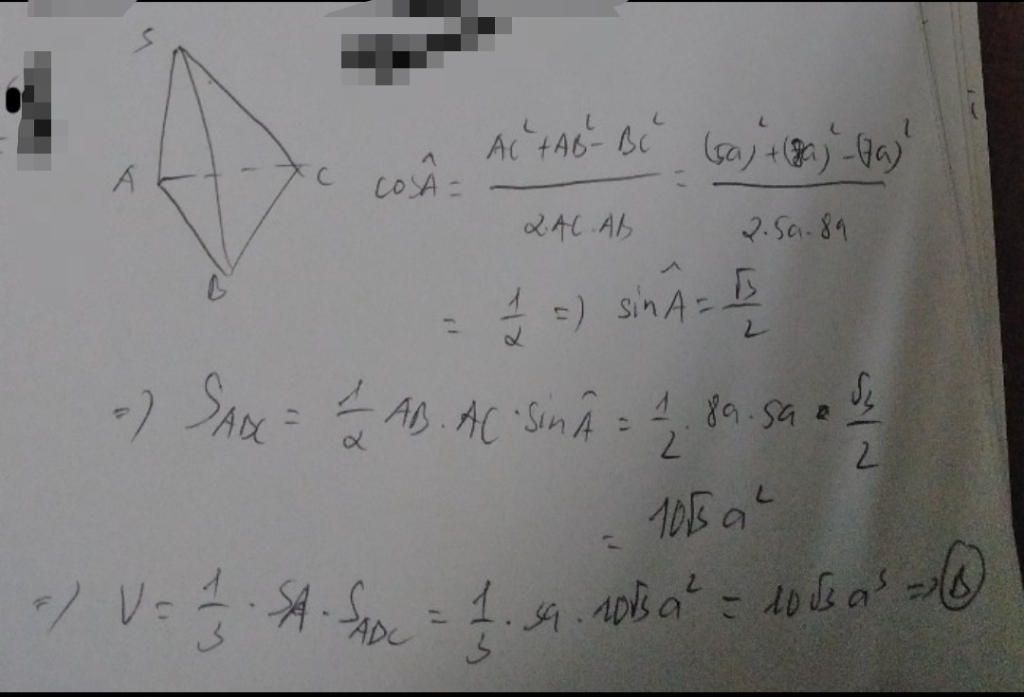 S
A
C
B
cosÂ = (AC² + AB² - BC²) / (2.AC.AB) = ((5a)² + (8a)² - (7a)²) / (2.5a.8a)
= 1/2 => sinÂ = √3/2
=> S_ABC = 1/2 AB.AC.sinÂ = 1/2 . 8a.5a . √3/2
= 10√3 a²
=> V = 1/3 . SA . S_ABC = 1/3 . 3a . 10√3 a² = 10√3 a³ => B